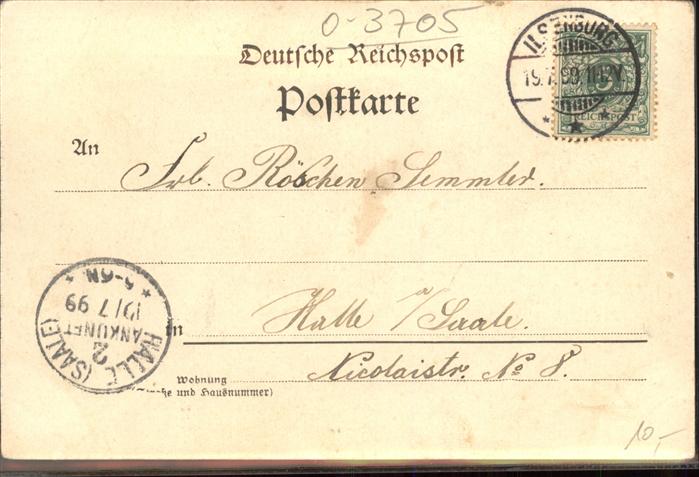 0-3705
Deutsche Reichspost
Postkarte
ILSENBURG
19.7.99 11-12V.
* * *
5
REICHSPOST
An
Frl. Röschen Semmler.
HALLE (SAALE)
2
ANKUNFT
19/7 99
* 5-6N *
in
Halle a/Saale.
Wohnung
Nicolaistr. No 8.
und Hausnummer)
10,-